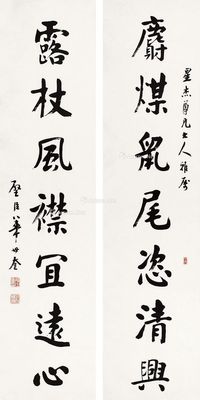 星杰尊兄大人雅屬
麝煤鼠尾恣清興
露杖風襟冝遠心
璧臣華世奎